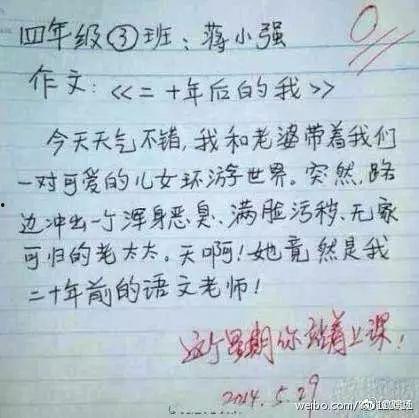 四年级③班:蒋小强
0
作文:《二十年后的我》
今天天气不错,我和老婆带着我们
一对可爱的儿女环游世界。突然,路
边冲出一个浑身恶臭、满脸污秽、无家
可归的老太太。天啊!她竟然是我
二十年前的语文老师!
这个星期你站着上课!
2014.5.29